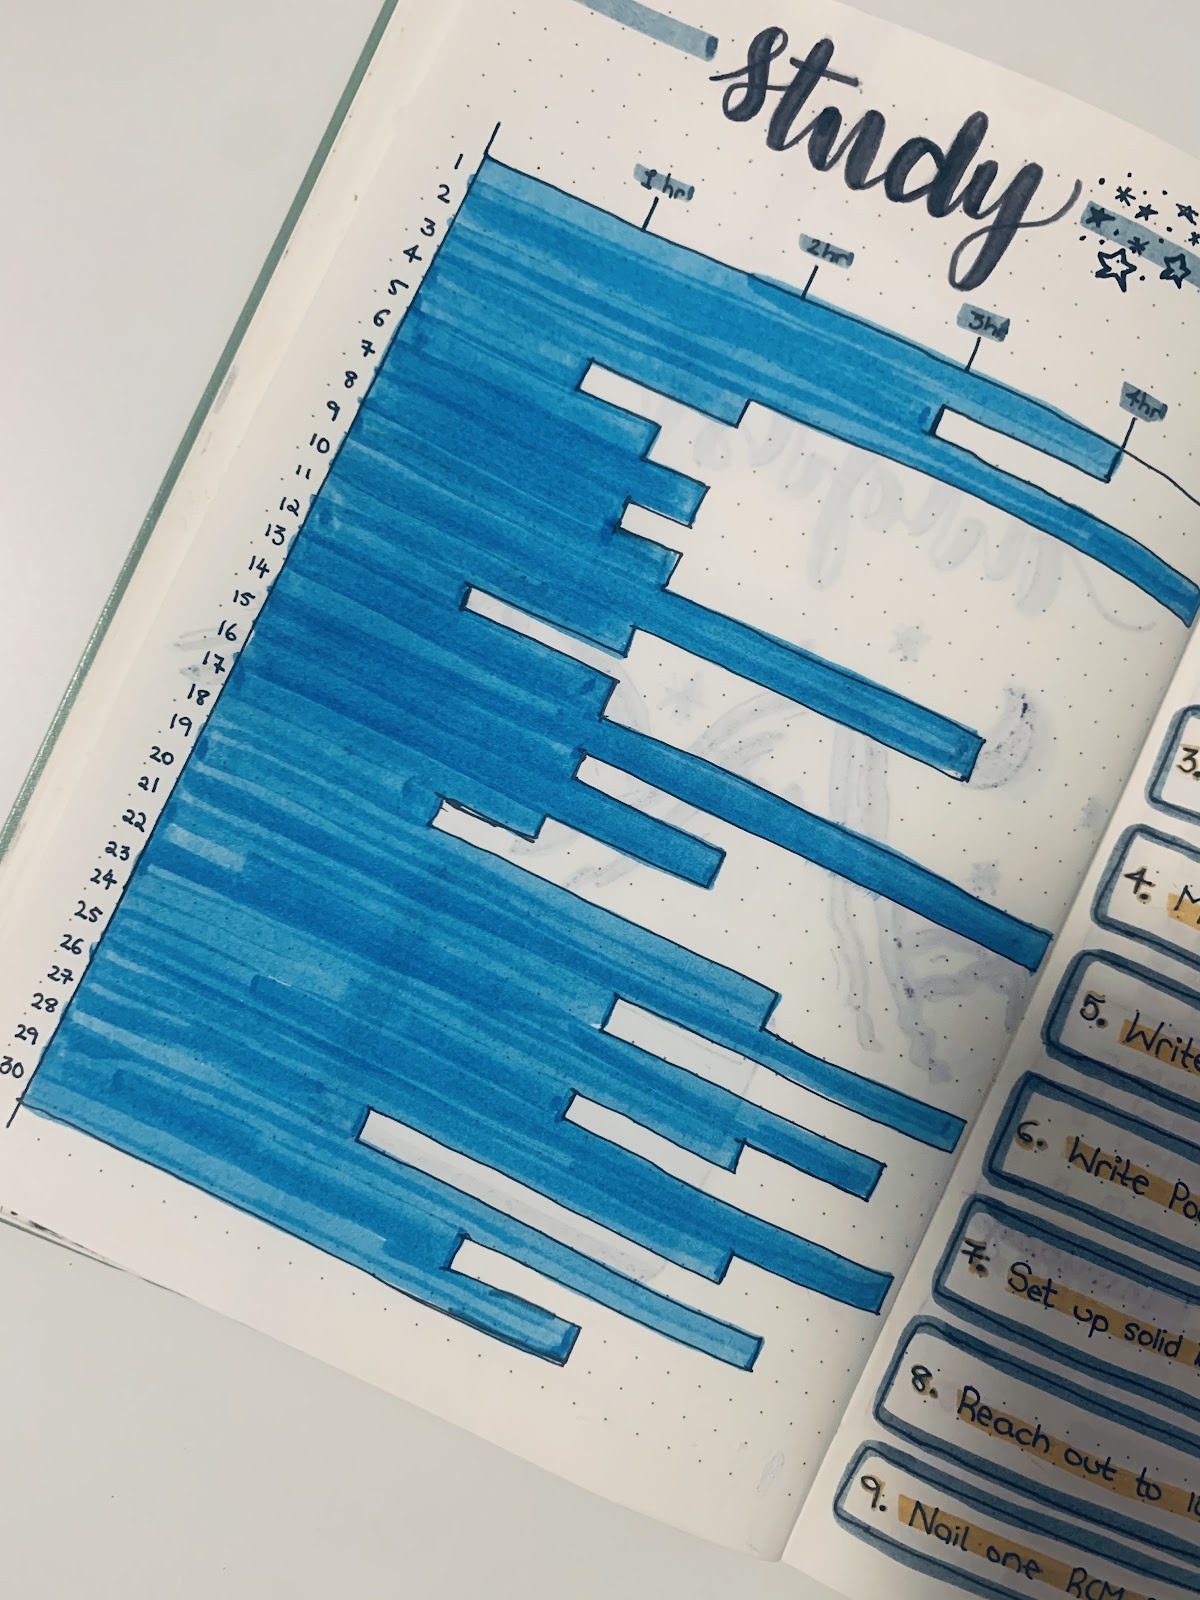 study
1 hr
2hr
3hr
4hr
1
2
3
4
5
6
7
8
9
10
11
12
13
14
15
16
17
18
19
20
21
22
23
24
25
26
27
28
29
30
3.
4.
5. Write
6. Write
7. Set up solid
8. Reach out to
9. Nail one RCM